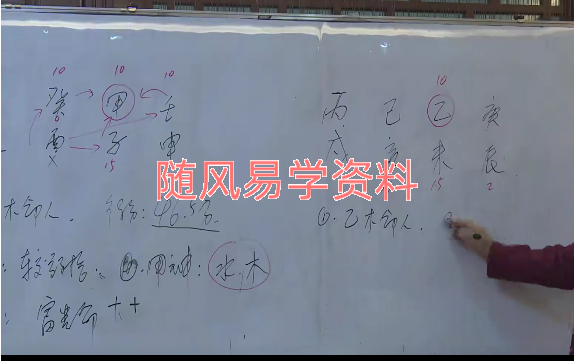 10 10 10
癸 甲 壬
酉 子 申
15
木命人. 得分: 46.5分.
较弱格. 用神: 水木
富贵命 ++
10
丙 己 乙 庚
戌 亥 未 辰
15 2
①. 乙木命人.
随风易学资料